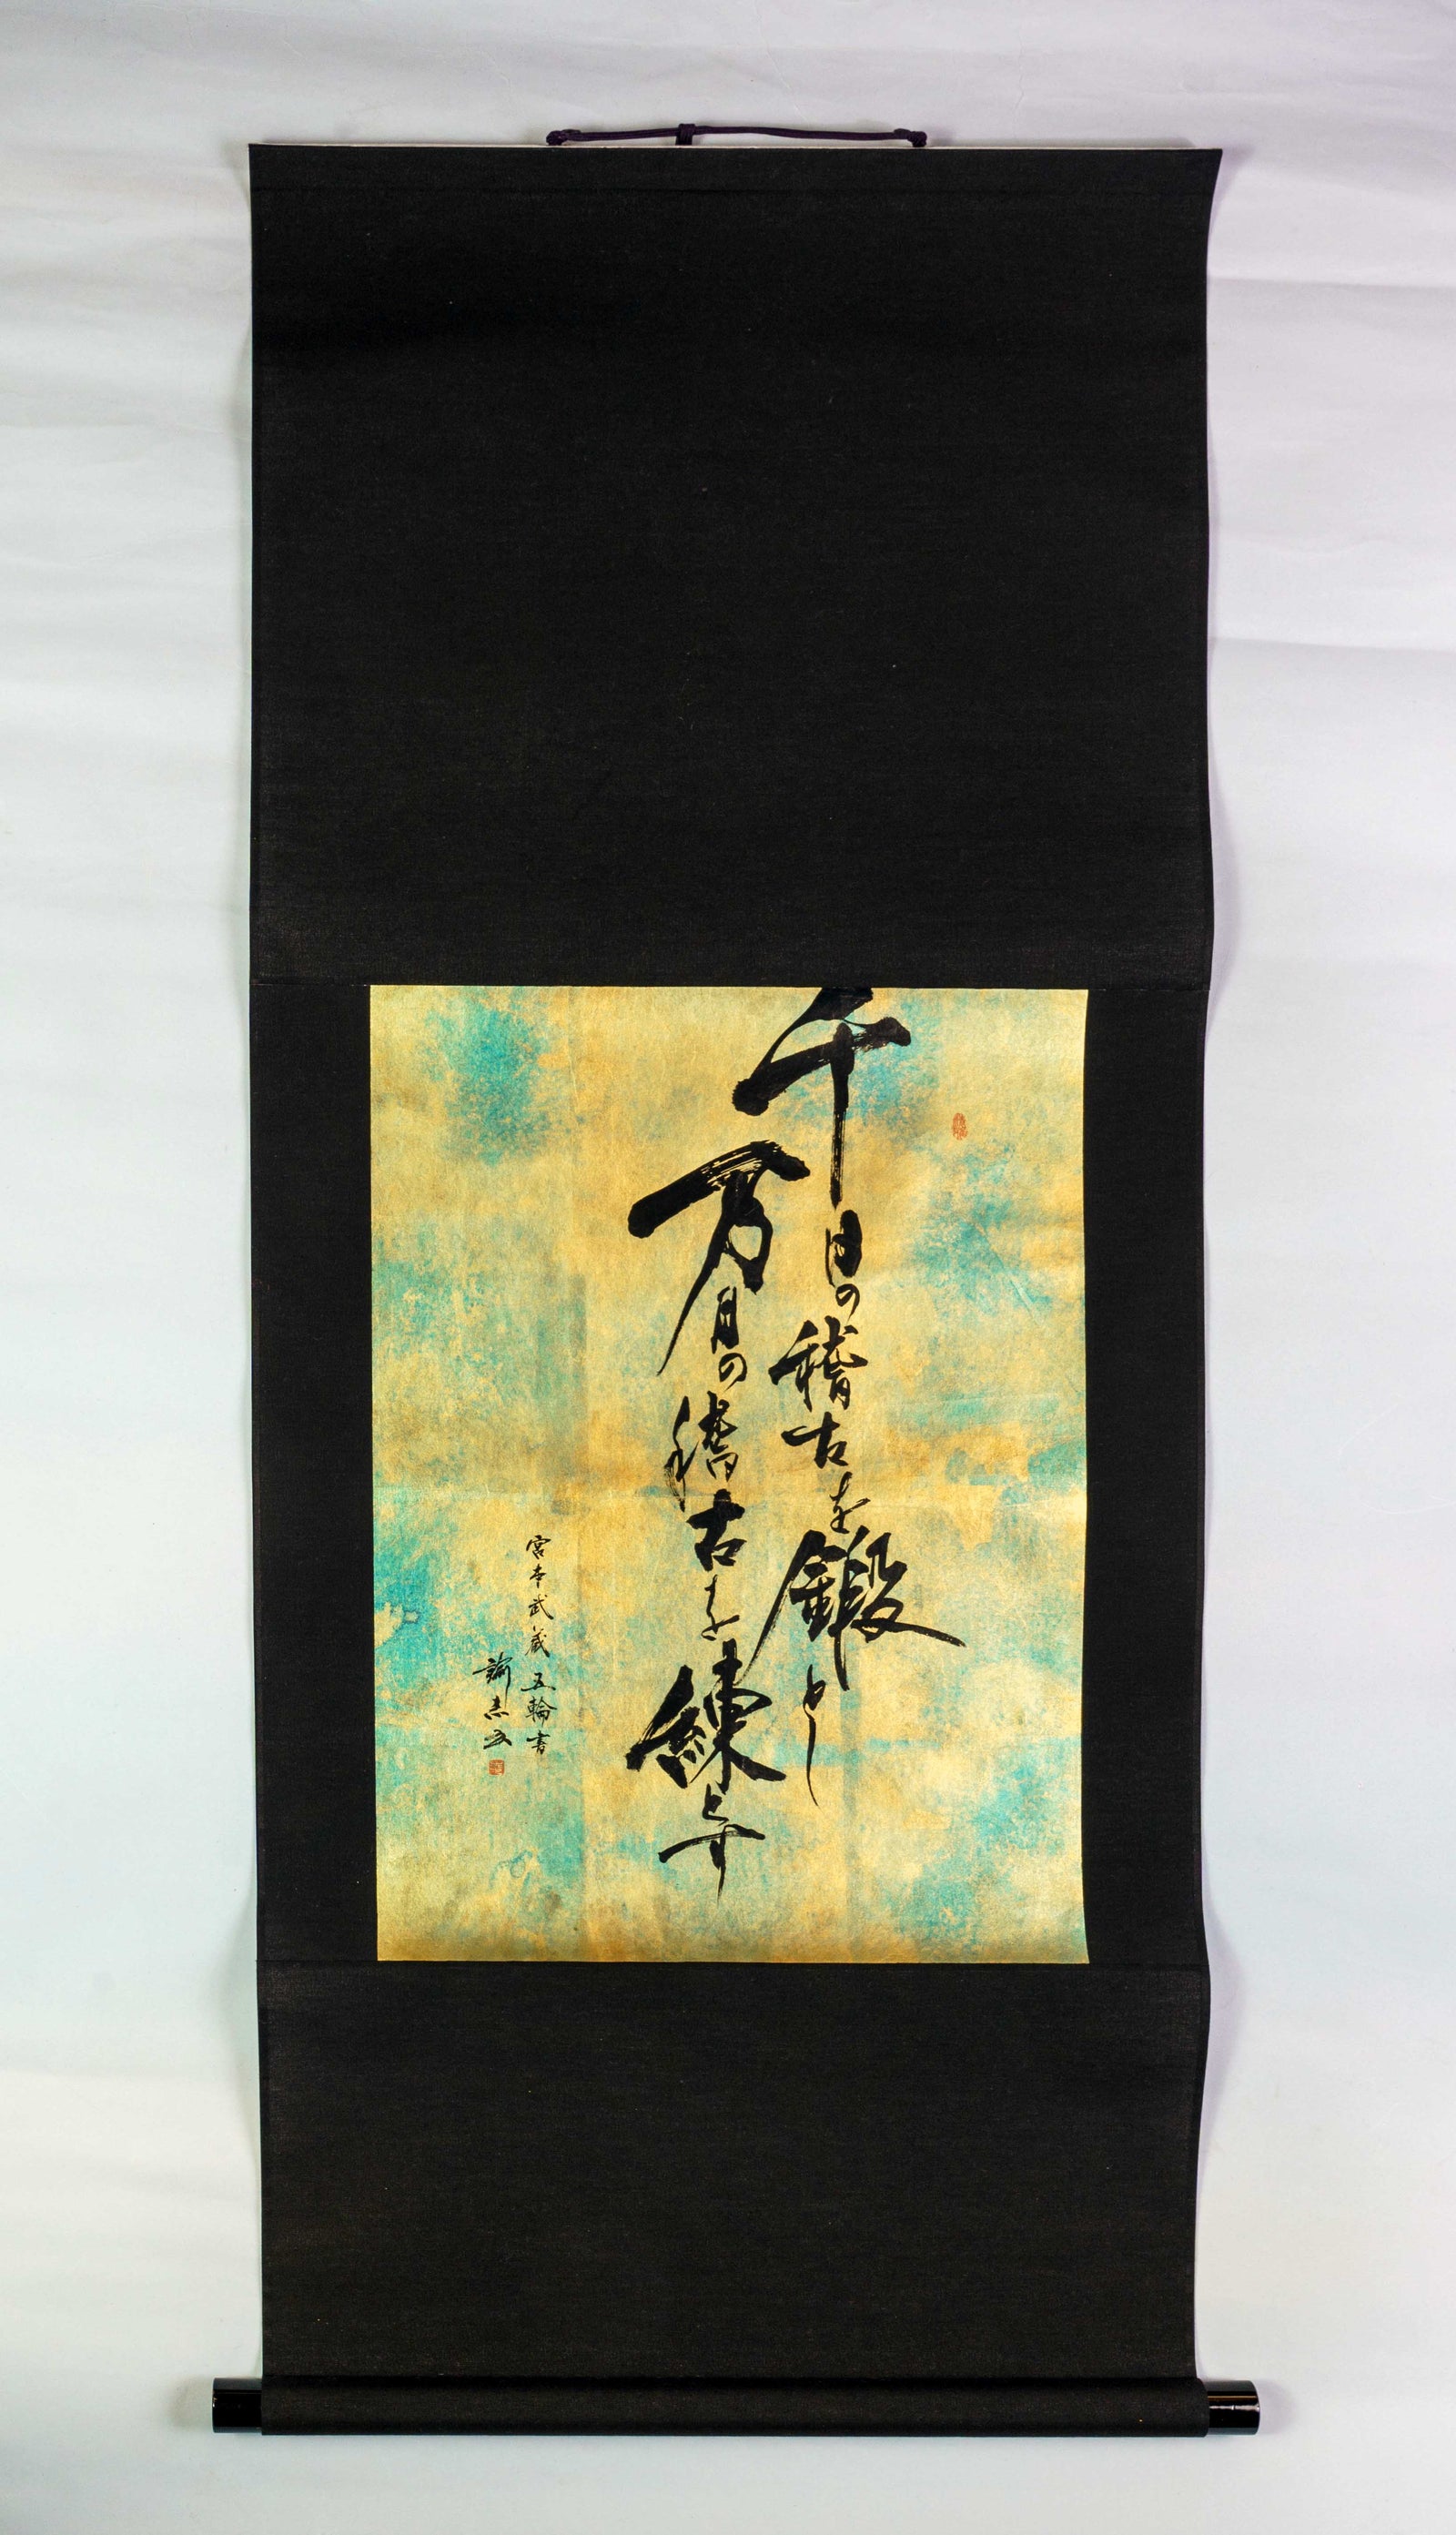 千日の稽古を鍛とし
万日の稽古を練とす
宮本武蔵 五輪書